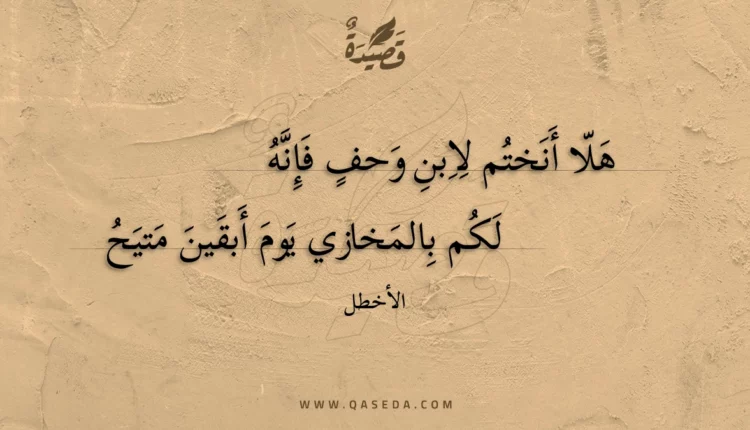 قَصِيدَةٌ
هَلّا أَنَختُم لِاِبنِ وَحفٍ فَإِنَّهُ
لَكُم بِالمَخازي يَومَ أَبقَينَ مَتيَحُ
الأخطل
WWW.QASEDA.COM